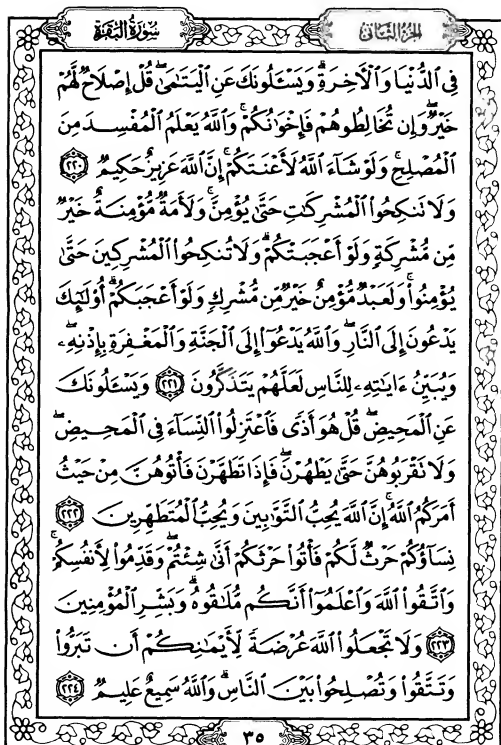 سُورَةُ البَقَرَةِ الجُزْءُ الثَّانِي
فِي ٱلدُّنْيَا وَٱلْءَاخِرَةِۗ وَيَسْـَٔلُونَكَ عَنِ ٱلْيَتَٰمَىٰۖ قُلْ إِصْلَاحٌ لَّهُمْ
خَيْرٌۖ وَإِن تُخَالِطُوهُمْ فَإِخْوَٰنُكُمْۚ وَٱللَّهُ يَعْلَمُ ٱلْمُفْسِدَ مِنَ
ٱلْمُصْلِحِۚ وَلَوْ شَآءَ ٱللَّهُ لَأَعْنَتَكُمْۚ إِنَّ ٱللَّهَ عَزِيزٌ حَكِيمٌ ٢٢٠
وَلَا تَنكِحُوا۟ ٱلْمُشْرِكَٰتِ حَتَّىٰ يُؤْمِنَّۚ وَلَأَمَةٌ مُّؤْمِنَةٌ خَيْرٌ
مِّن مُّشْرِكَةٍ وَلَوْ أَعْجَبَتْكُمْۗ وَلَا تُنكِحُوا۟ ٱلْمُشْرِكِينَ حَتَّىٰ
يُؤْمِنُوا۟ۚ وَلَعَبْدٌ مُّؤْمِنٌ خَيْرٌ مِّن مُّشْرِكٍ وَلَوْ أَعْجَبَكُمْۗ أُو۟لَٰٓئِكَ
يَدْعُونَ إِلَى ٱلنَّارِۖ وَٱللَّهُ يَدْعُوٓا۟ إِلَى ٱلْجَنَّةِ وَٱلْمَغْفِرَةِ بِإِذْنِهِۦۖ
وَيُبَيِّنُ ءَايَٰتِهِۦ لِلنَّاسِ لَعَلَّهُمْ يَتَذَكَّرُونَ ٢٢١ وَيَسْـَٔلُونَكَ
عَنِ ٱلْمَحِيضِۖ قُلْ هُوَ أَذًى فَٱعْتَزِلُوا۟ ٱلنِّسَآءَ فِي ٱلْمَحِيضِۖ
وَلَا تَقْرَبُوهُنَّ حَتَّىٰ يَطْهُرْنَۖ فَإِذَا تَطَهَّرْنَ فَأْتُوهُنَّ مِنْ حَيْثُ
أَمَرَكُمُ ٱللَّهُۚ إِنَّ ٱللَّهَ يُحِبُّ ٱلتَّوَّٰبِينَ وَيُحِبُّ ٱلْمُتَطَهِّرِينَ ٢٢٢
نِسَآؤُكُمْ حَرْثٌ لَّكُمْ فَأْتُوا۟ حَرْثَكُمْ أَنَّىٰ شِئْتُمْۖ وَقَدِّمُوا۟ لِأَنفُسِكُمْۚ
وَٱتَّقُوا۟ ٱللَّهَ وَٱعْلَمُوٓا۟ أَنَّكُم مُّلَٰقُوهُۗ وَبَشِّرِ ٱلْمُؤْمِنِينَ
٢٢٣ وَلَا تَجْعَلُوا۟ ٱللَّهَ عُرْضَةً لِّأَيْمَٰنِكُمْ أَن تَبَرُّوا۟
وَتَتَّقُوا۟ وَتُصْلِحُوا۟ بَيْنَ ٱلنَّاسِۗ وَٱللَّهُ سَمِيعٌ عَلِيمٌ ٢٢٤
٣٥